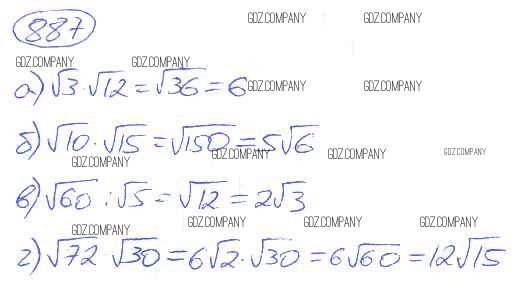 887
GDZ.COMPANY GDZ.COMPANY
GDZ.COMPANY GDZ.COMPANY
а) √3 · √12 = √36 = 6
GDZ.COMPANY GDZ.COMPANY
б) √10 · √15 = √150 = 5√6
GDZ.COMPANY GDZ.COMPANY GDZ.COMPANY GDZ.COMPANY
в) √60 : √5 = √12 = 2√3
GDZ.COMPANY GDZ.COMPANY GDZ.COMPANY GDZ.COMPANY
г) √72 · √30 = 6√2 · √30 = 6√60 = 12√15